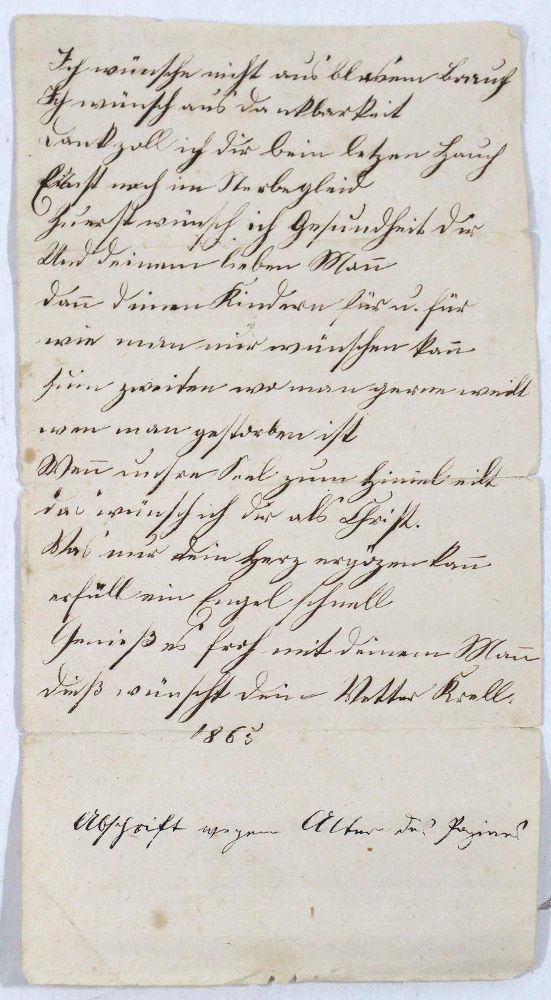 Ich wünsche nicht aus blosem brauch
Ich wünsch aus dankbarkeit
Dank zoll ich dir bein letzen Hauch
Einst noch im Sterbegleid
Zuerst wünsch ich Gesundheit dir
Und deinem lieben Mann̄
dan̄ deinen Kindern für u. für
wie man nur wünschen kan̄
zum zweiten wo man gerne weilt
wen man gestorben ist
Wen̄ unsre Seel zum Him̄el eilt
das wünsch ich dir als Christ.
Was nur dein Herz ergözen kan̄
erfüll ein Engel schnell
Genieß es froh mit deinem Man̄
dieß wünscht dein Vetter Krell.
1865
Abschrift wegen Alter des